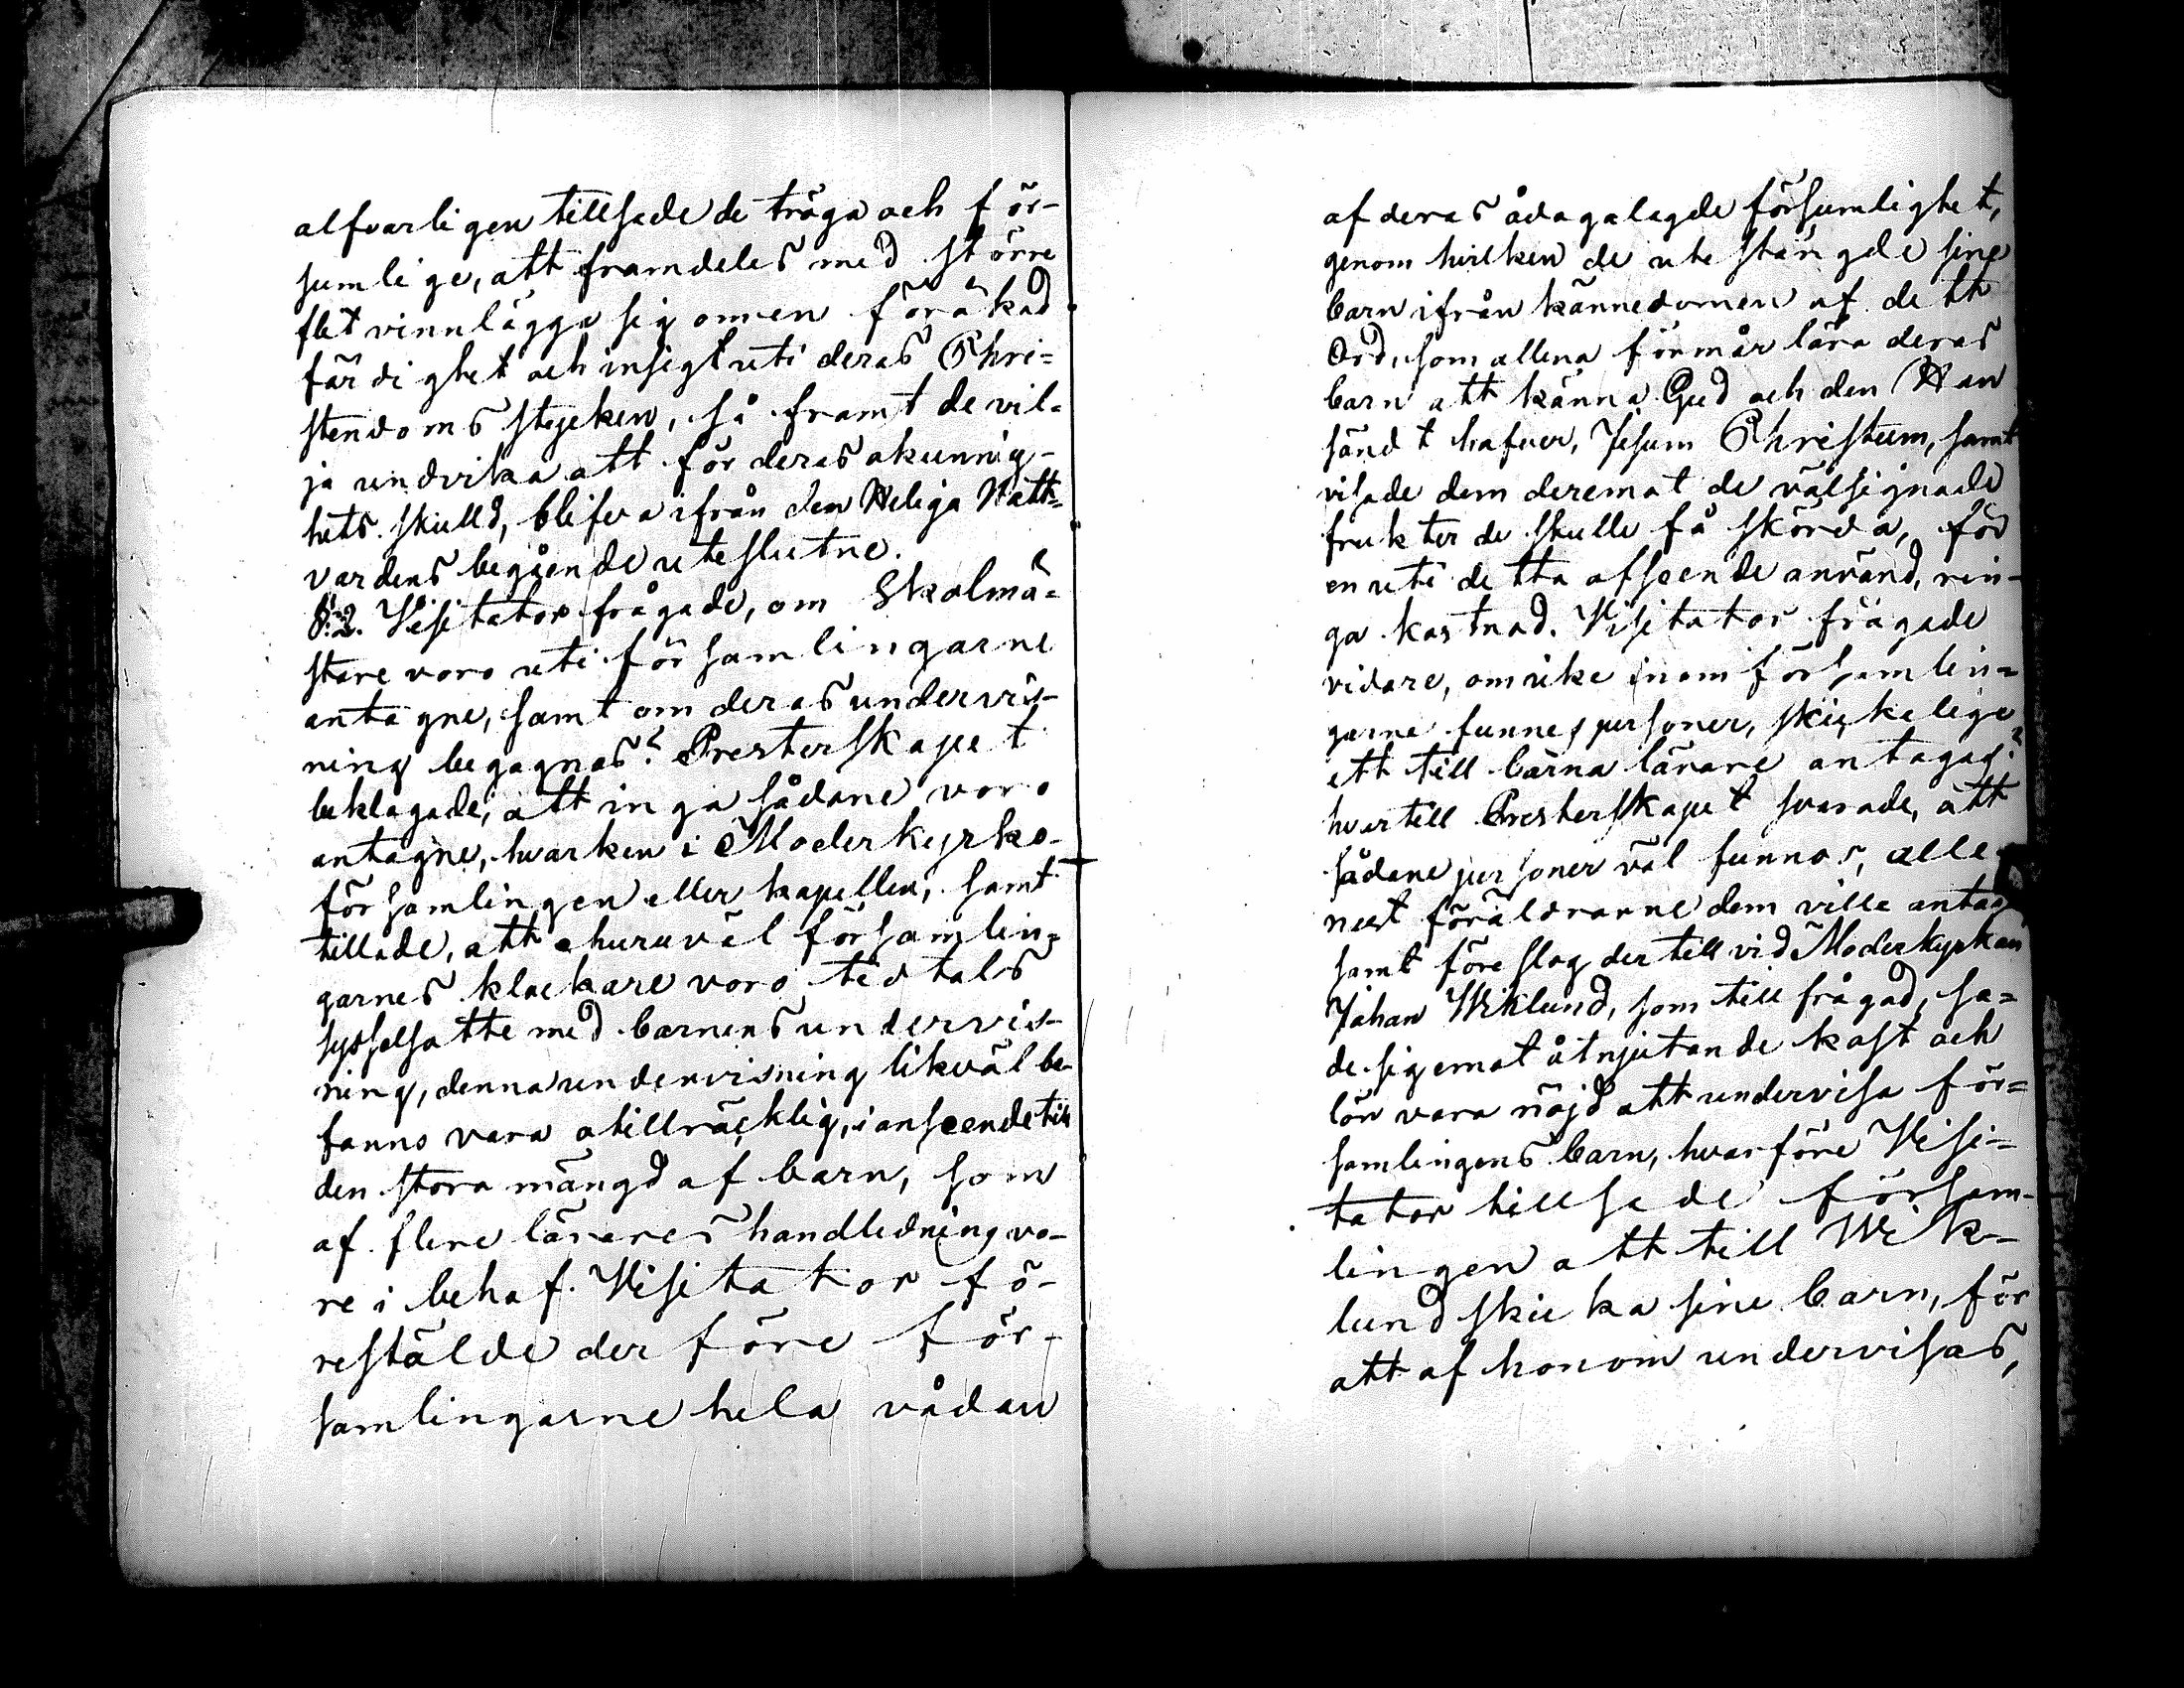 alfvarligen tillsade de tröga och för-
sumlige, att framdeles med större
flit vinnlägga sig om en förökad
färdighet och insigt uti deras Chri=
stendoms stycken, så framt de vil=
ja undvika att för deras okunnig-
hets skulld, blifva ifrån den Heliga Natt=
vardens begående uteslutne.
§:2. Visitator frågade, om Skolmä=
stare voro uti församlingarne
antagne, samt om deras undervis-
ning begagnas? Presterskapet
beklagade, att inga sådane voro
antagne, hvarken i Moderkyrko-
församlingen eller kapellen, samt
tillade, att ehuruväl församlin=
garnes klockare voro tidtals
sysselsatte med barnens undervis-
ning, denna undervisning likväl be-
fanns vara otillräcklig, i anseende till
den stora mängd af barn, som
af flere lärares handledning vo-
re i behof. Visitator fö-
restälde der före för-
samlingarne hela vådan
af deras ådagalagde försumlighet,
genom hvilken de utestängde sine
barn ifrån kännedomen af dett
Ord, som allena förmår lära deras
barn att känna Gud och den Han
sändt hafver, Jesum Christum, samt
visade dem deremot de välsignade
frukter de skulle få skörda, för
en uti detta afseende använd, rin-
ga kostnad. Visitator frågade
vidare, om icke inom församlin=
garne funnes personer, skickelige
att till barna lärare antagas?
hvartill Presterskapet svarade, att
sådane personer väl funnos, alle-
nast föräldrarne dem ville antaga
samt föreslog der till vid Moderkyrkan
Johan Wiklund, som tillfrågad, sa=
de sig emot åtnjutande kost och
lön vara nöjd att undervisa för=
samlingens barn, hvarföre Visi=
tator tillsade försam-
lingen att till Wik-
lund skicka sine barn, för
att af honom undervisas,